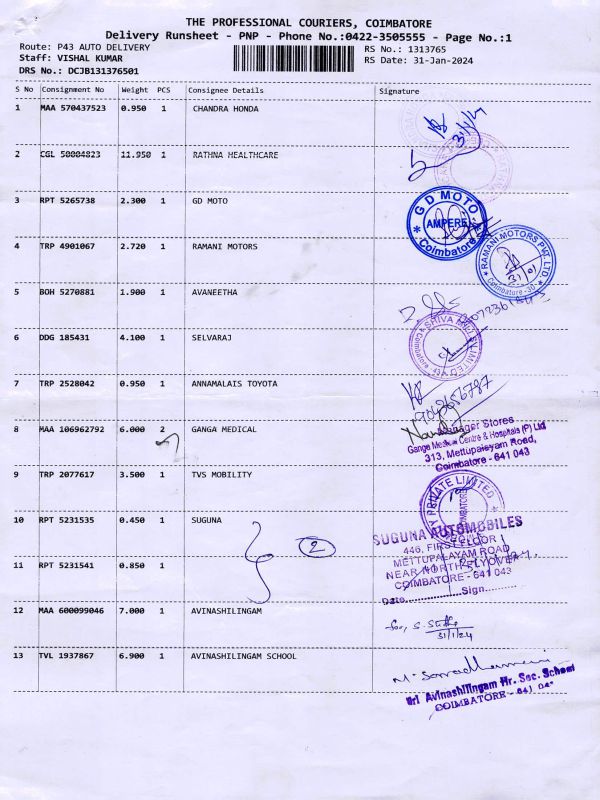 THE PROFESSIONAL COURIERS, COIMBATORE
Delivery Runsheet - PNP - Phone No.:0422-3505555 - Page No.:1
Route: P43 AUTO DELIVERY
RS No.: 1313765
Staff: VISHAL KUMAR
RS Date: 31-Jan-2024
DRS No.: DCJB131376501
S No Consignment No Weight PCS Consignee Details Signature
1 MAA 570437523 0.950 1 CHANDRA HONDA
31/1/24
2 CGL 50004823 11.950 1 RATHNA HEALTHCARE
3 RPT 5265738 2.300 1 GD MOTO
GD MOTO
AMPERE
Coimbatore
4 TRP 4901067 2.720 1 RAMANI MOTORS
RAMANI MOTORS PVT. LTD
31/01
Coimbatore - 30
5 BOH 5270881 1.900 1 AVANEETHA
6 DDG 185431 4.100 1 SELVARAJ
Coimbatore - 43
7 TRP 2528042 0.950 1 ANNAMALAIS TOYOTA
8 MAA 106962792 6.000 2 GANGA MEDICAL
Stores
Ganga Medical Centre & Hospitals (P) Ltd
313, Mettupalayam Road,
Coimbatore - 641 043
9 TRP 2077617 3.500 1 TVS MOBILITY
PRIVATE LIMITED
10 RPT 5231535 0.450 1 SUGUNA
2
SUGUNA AUTOMOBILES
446, FIRST FLOOR
METTUPALAYAM ROAD
NEAR NORTH FLYOVER
COIMBATORE - 641 043
Date Sign
11 RPT 5231541 0.850 1
12 MAA 600099046 7.000 1 AVINASHILINGAM
for, S.
31/1/24
13 TVL 1937867 6.900 1 AVINASHILINGAM SCHOOL
Sri Avinashilingam Hr. Sec. School
COIMBATORE - 641 04